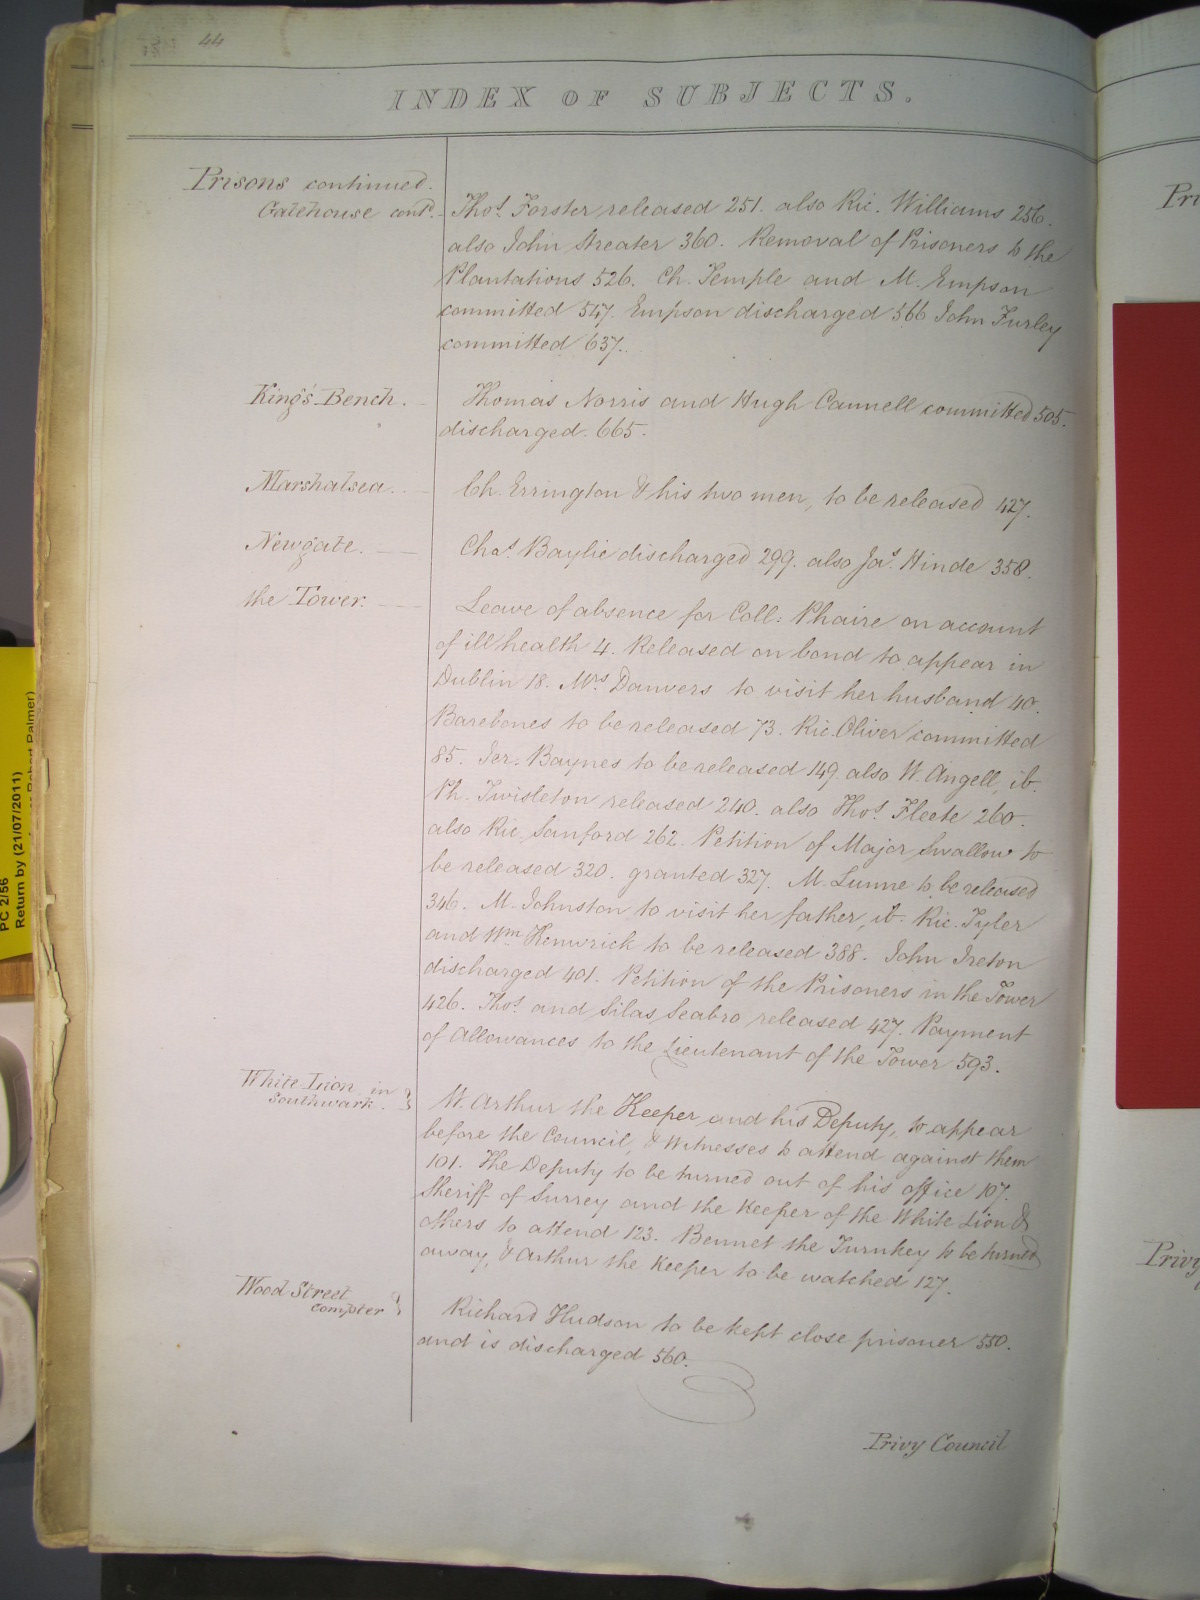 44
INDEX OF SUBJECTS.
Prisons continued.
Gatehouse contd. Thos. Forster released 251. also Ric. Williams 256.
also John Streater 360. Removal of Prisoners to the
Plantations 526. Ch. Temple and M. Empson
committed 547. Empson discharged 566 John Furley
committed 637.
King's Bench. Thomas Norris and Hugh Cannell committed 505.
discharged. 665.
Marshalsea. Ch. Errington & his two men, to be released 427.
Newgate. Chas. Baylie discharged 299. also Jas. Hinde 358.
the Tower. Leave of absence for Coll: Phaire on account
of ill health 4. Released on bond to appear in
Dublin 18. Mrs Danvers to visit her husband 40.
Barebones to be released 73. Ric. Oliver committed
85. Jer. Baynes to be released 149. also W. Angell, ib.
Ph. Twisleton released 240. also Thos. Fleete 260.
also Ric. Sanford 262. Petition of Major Swallow to
be released 320. granted 327. M. Lunne to be released
346. M. Johnston to visit her father, ib. Ric. Tyler
and Wm Kenwrick to be released 388. John Ireton
discharged 401. Petition of the Prisoners in the Tower
426. Thos. and Silas Seabro released 427. Payment
of Allowances to the Lieutenant of the Tower 593.
White Lion in
Southwark. W. Arthur the Keeper and his Deputy, to appear
before the Council, & Witnesses to attend against them
101. The Deputy to be turned out of his office 107.
Sheriff of Surrey and the Keeper of the White Lion &
others to attend 123. Bennet the Turnkey to be turned
away, & Arthur the Keeper to be watched 127.
Wood Street
compter Richard Hudson to be kept close prisoner 550.
and is discharged 560.
Privy Council
Pri
Privy
PC 2/56
Return by (21/07/2011)
Robert Palmer)